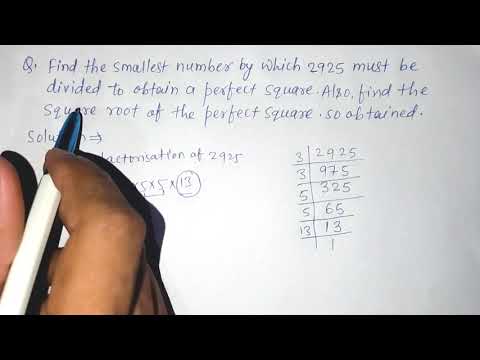 Q. Find the smallest number by which 2925 must be
divided to obtain a perfect square. Also, find the
square root of the perfect square. so obtained.
⇒
of 2925
×5×13
3 | 2925
3 | 975
5 | 325
5 | 65
13 | 13
1